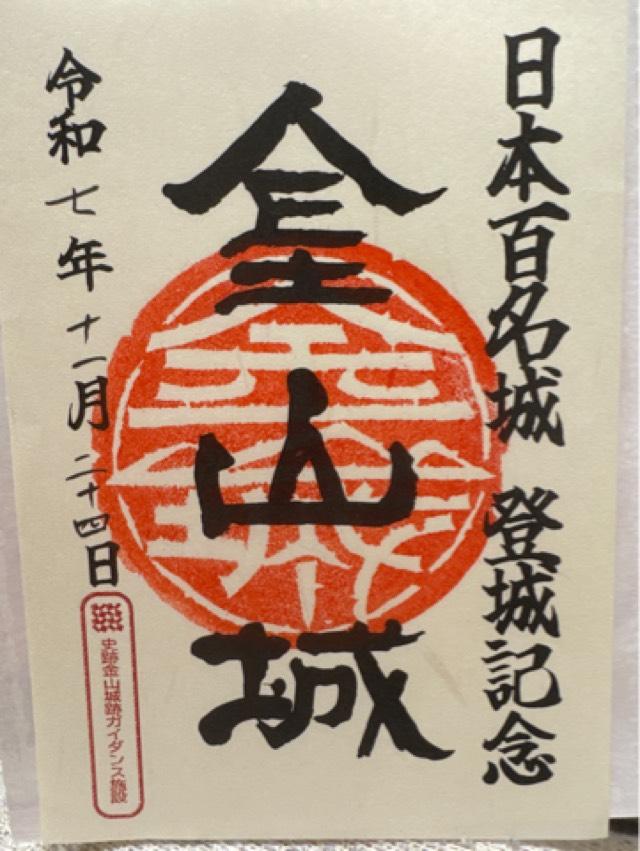 日本百名城 登城記念
金山城
令和七年十一月二十四日
史跡金山城跡ガイダンス施設